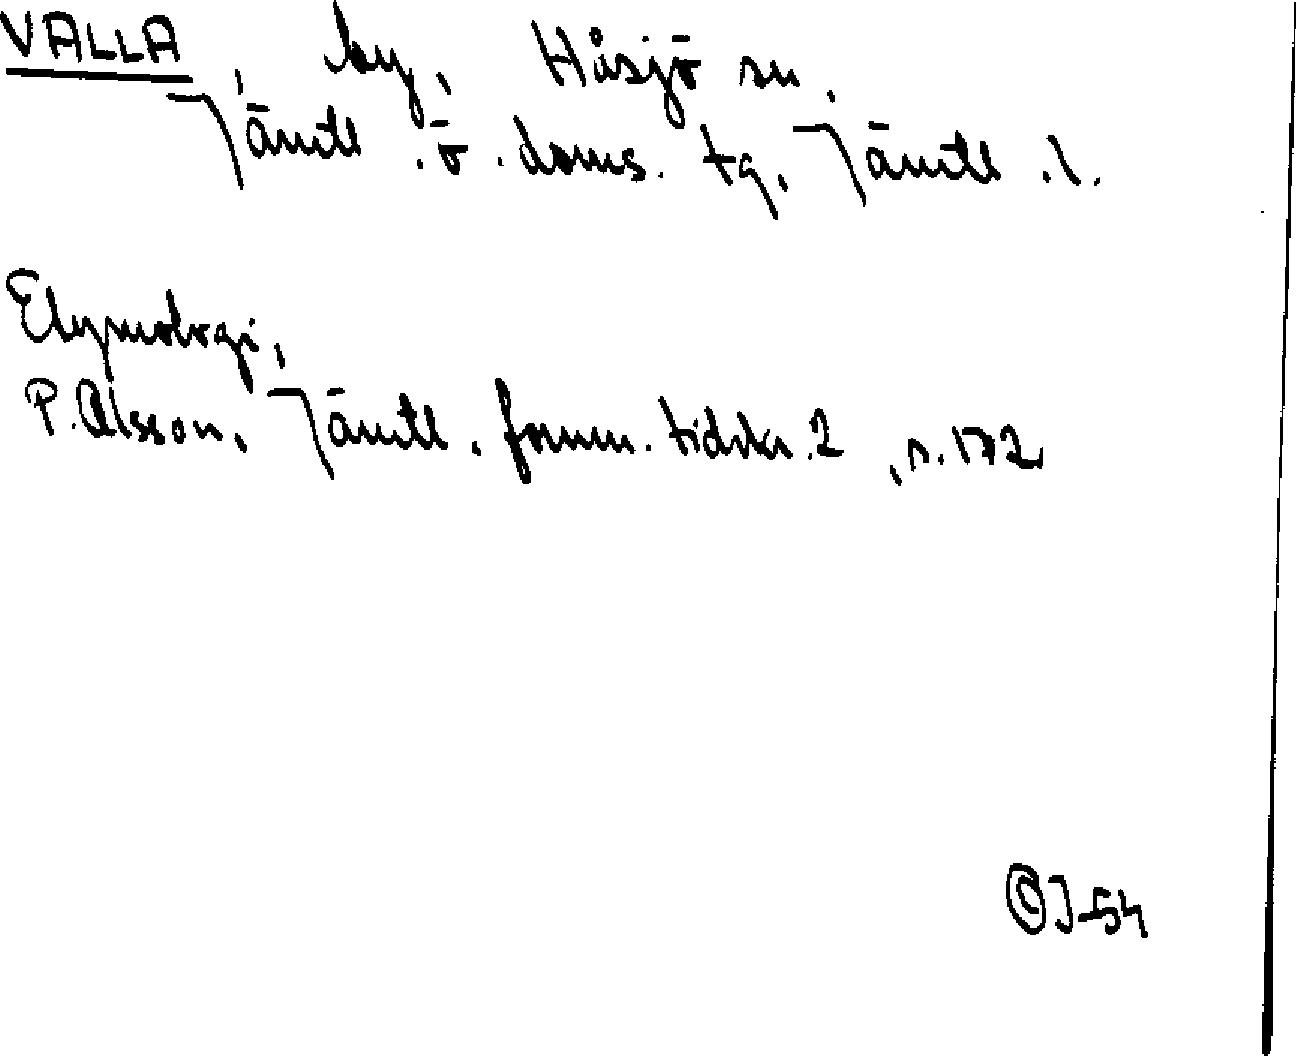 VALLA, by, Håsjö sn,
Jämtl. ö. doms. tg, Jämtl. l.
Etymologi,
P. Olsson, Jämtl. fornm. tidskr. 2, s. 172
©J-54